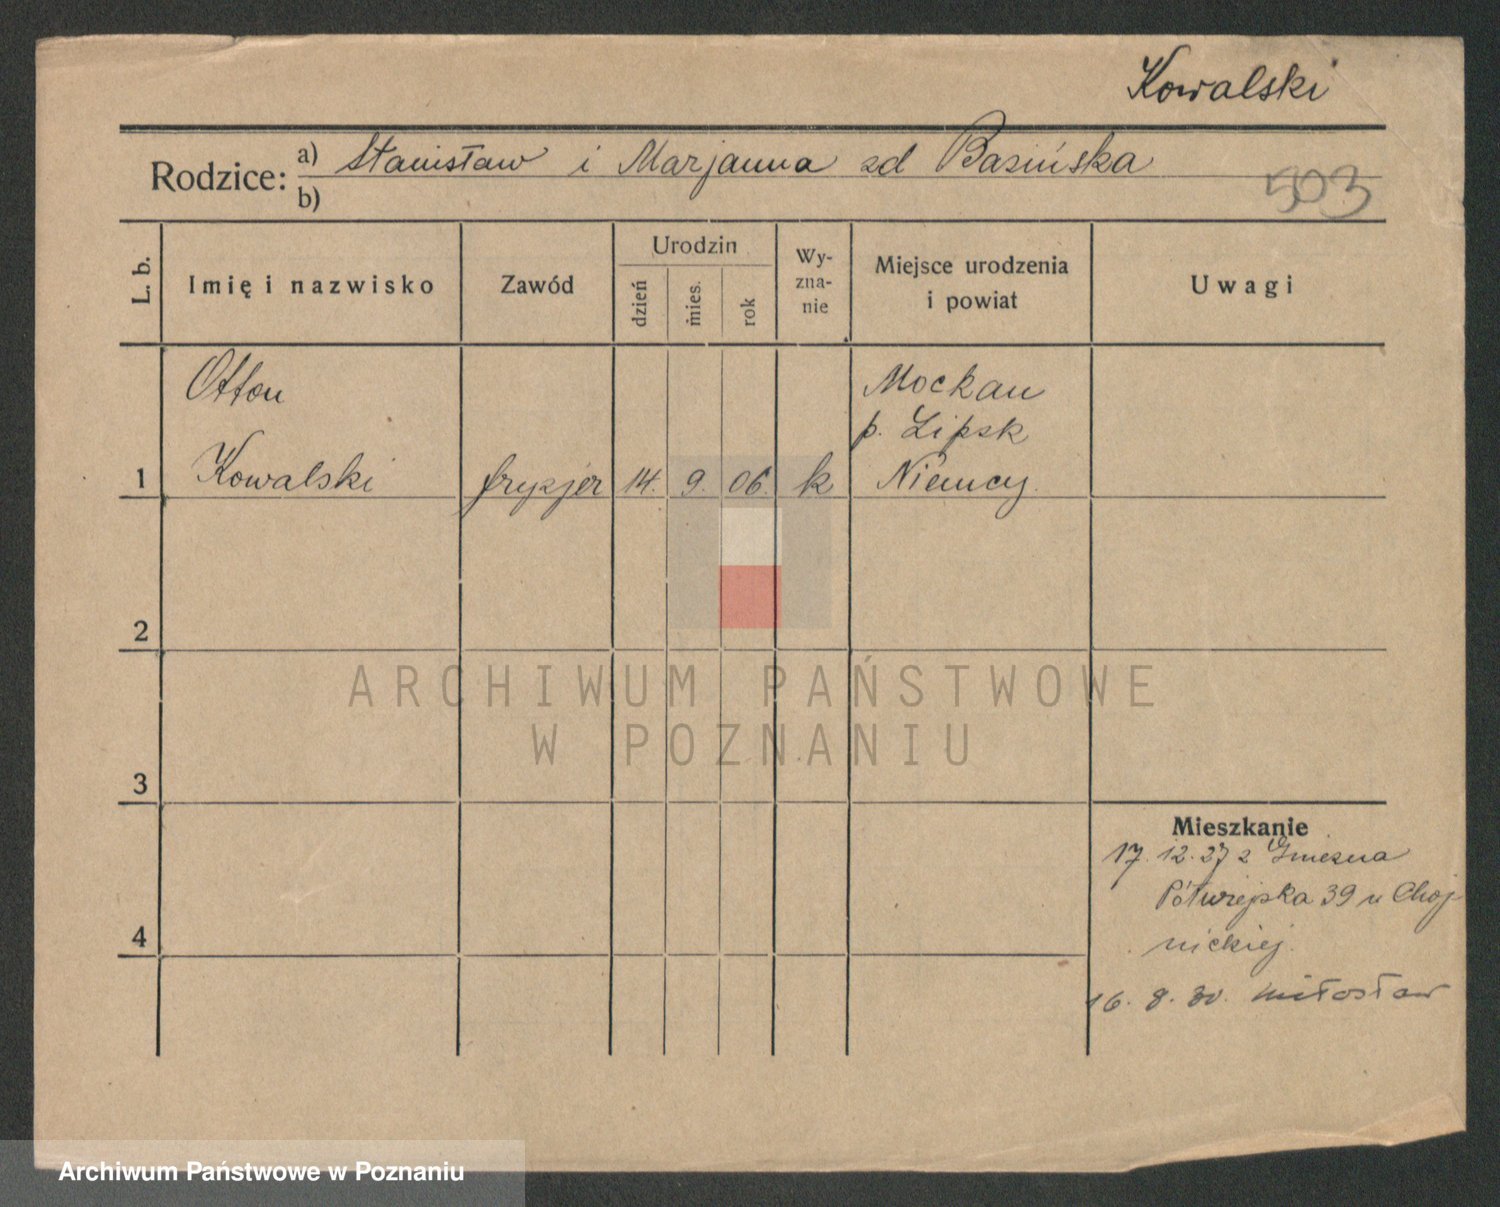 Kowalski
Rodzice: a) Stanisław i Marjanna zd Basińska
b)
503
L. b.
Imię i nazwisko
Zawód
Urodzin
dzień
mies.
rok
Wy-
zna-
nie
Miejsce urodzenia
i powiat
Uwagi
Otton
Mockau
p. Lipsk
1 Kowalski fryzjer 14. 9. 06. k Niemcy.
2
3
4
Mieszkanie
17. 12. 27 z Gniezna
Półwiejska 39 u Choj
nickiej.
16. 8. 30. Miłosław
ARCHIWUM PAŃSTWOWE
W POZNANIU
Archiwum Państwowe w Poznaniu